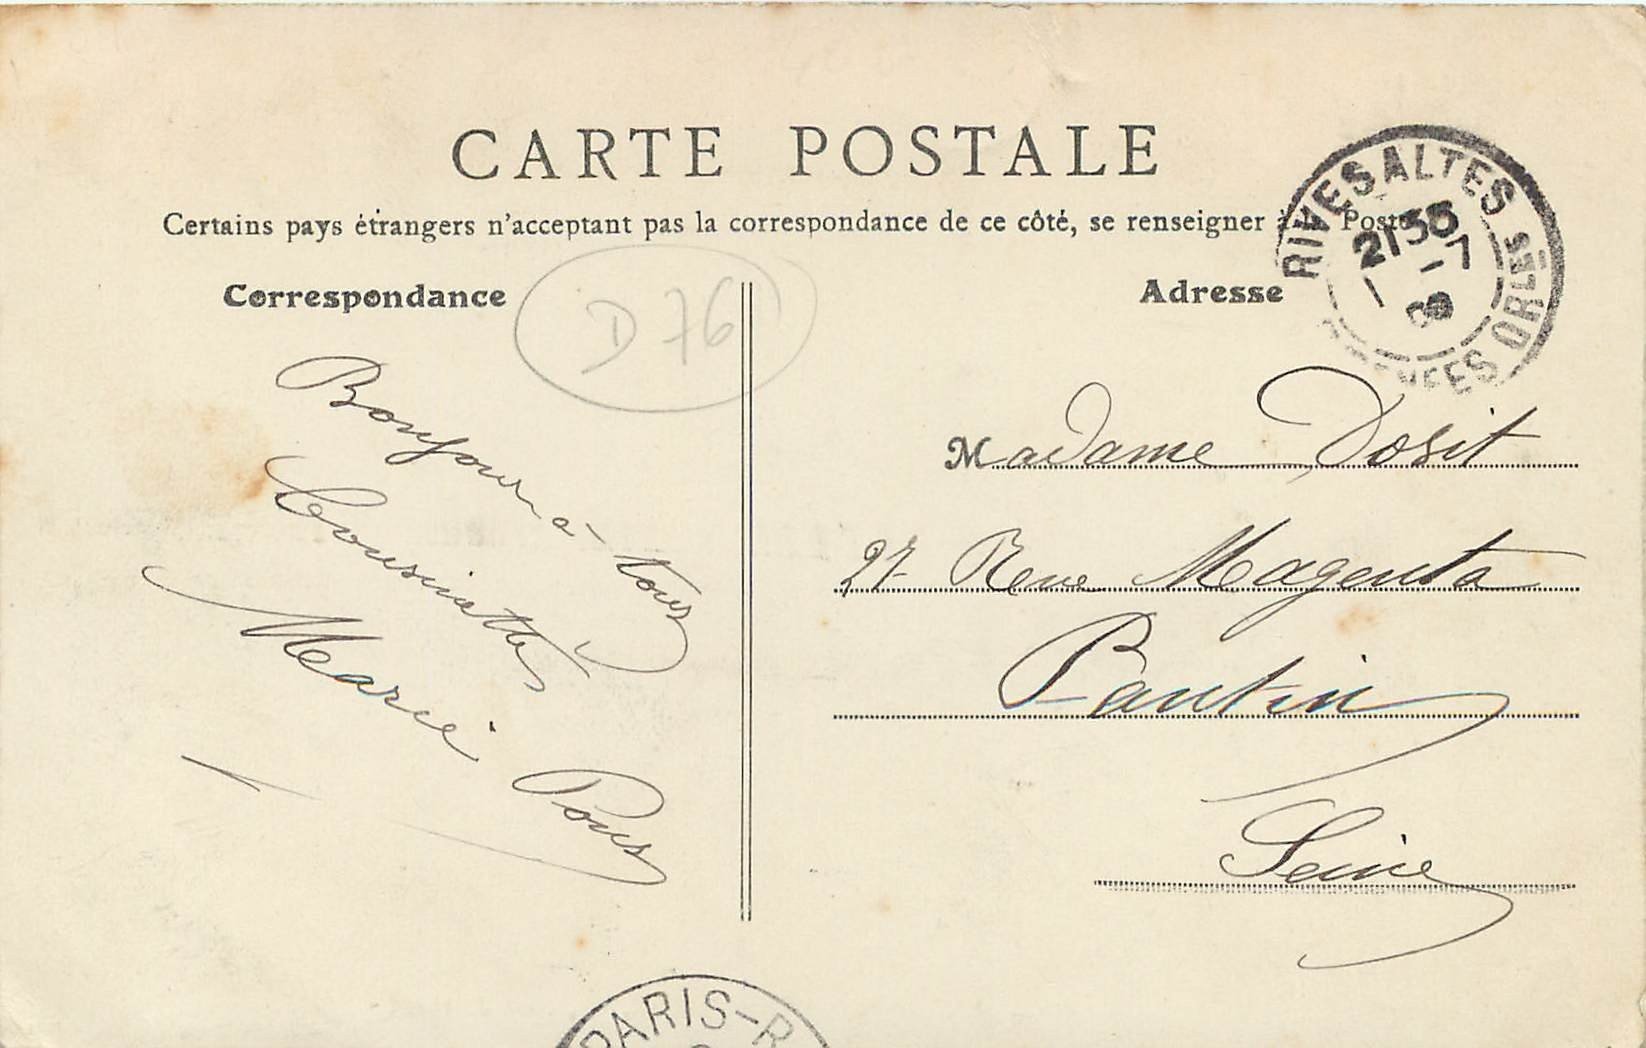 CARTE POSTALE
Certains pays étrangers n'acceptant pas la correspondance de ce côté, se renseigner à la Poste
Correspondance
Adresse
D 76
RIVESALTES
21 30
1 -7
09
PYRÉNÉES ORLES
Bonjour à tous
Marie Pous
Madame Dosit
27 Rue Magenta
Pantin
Seine
PARIS-R